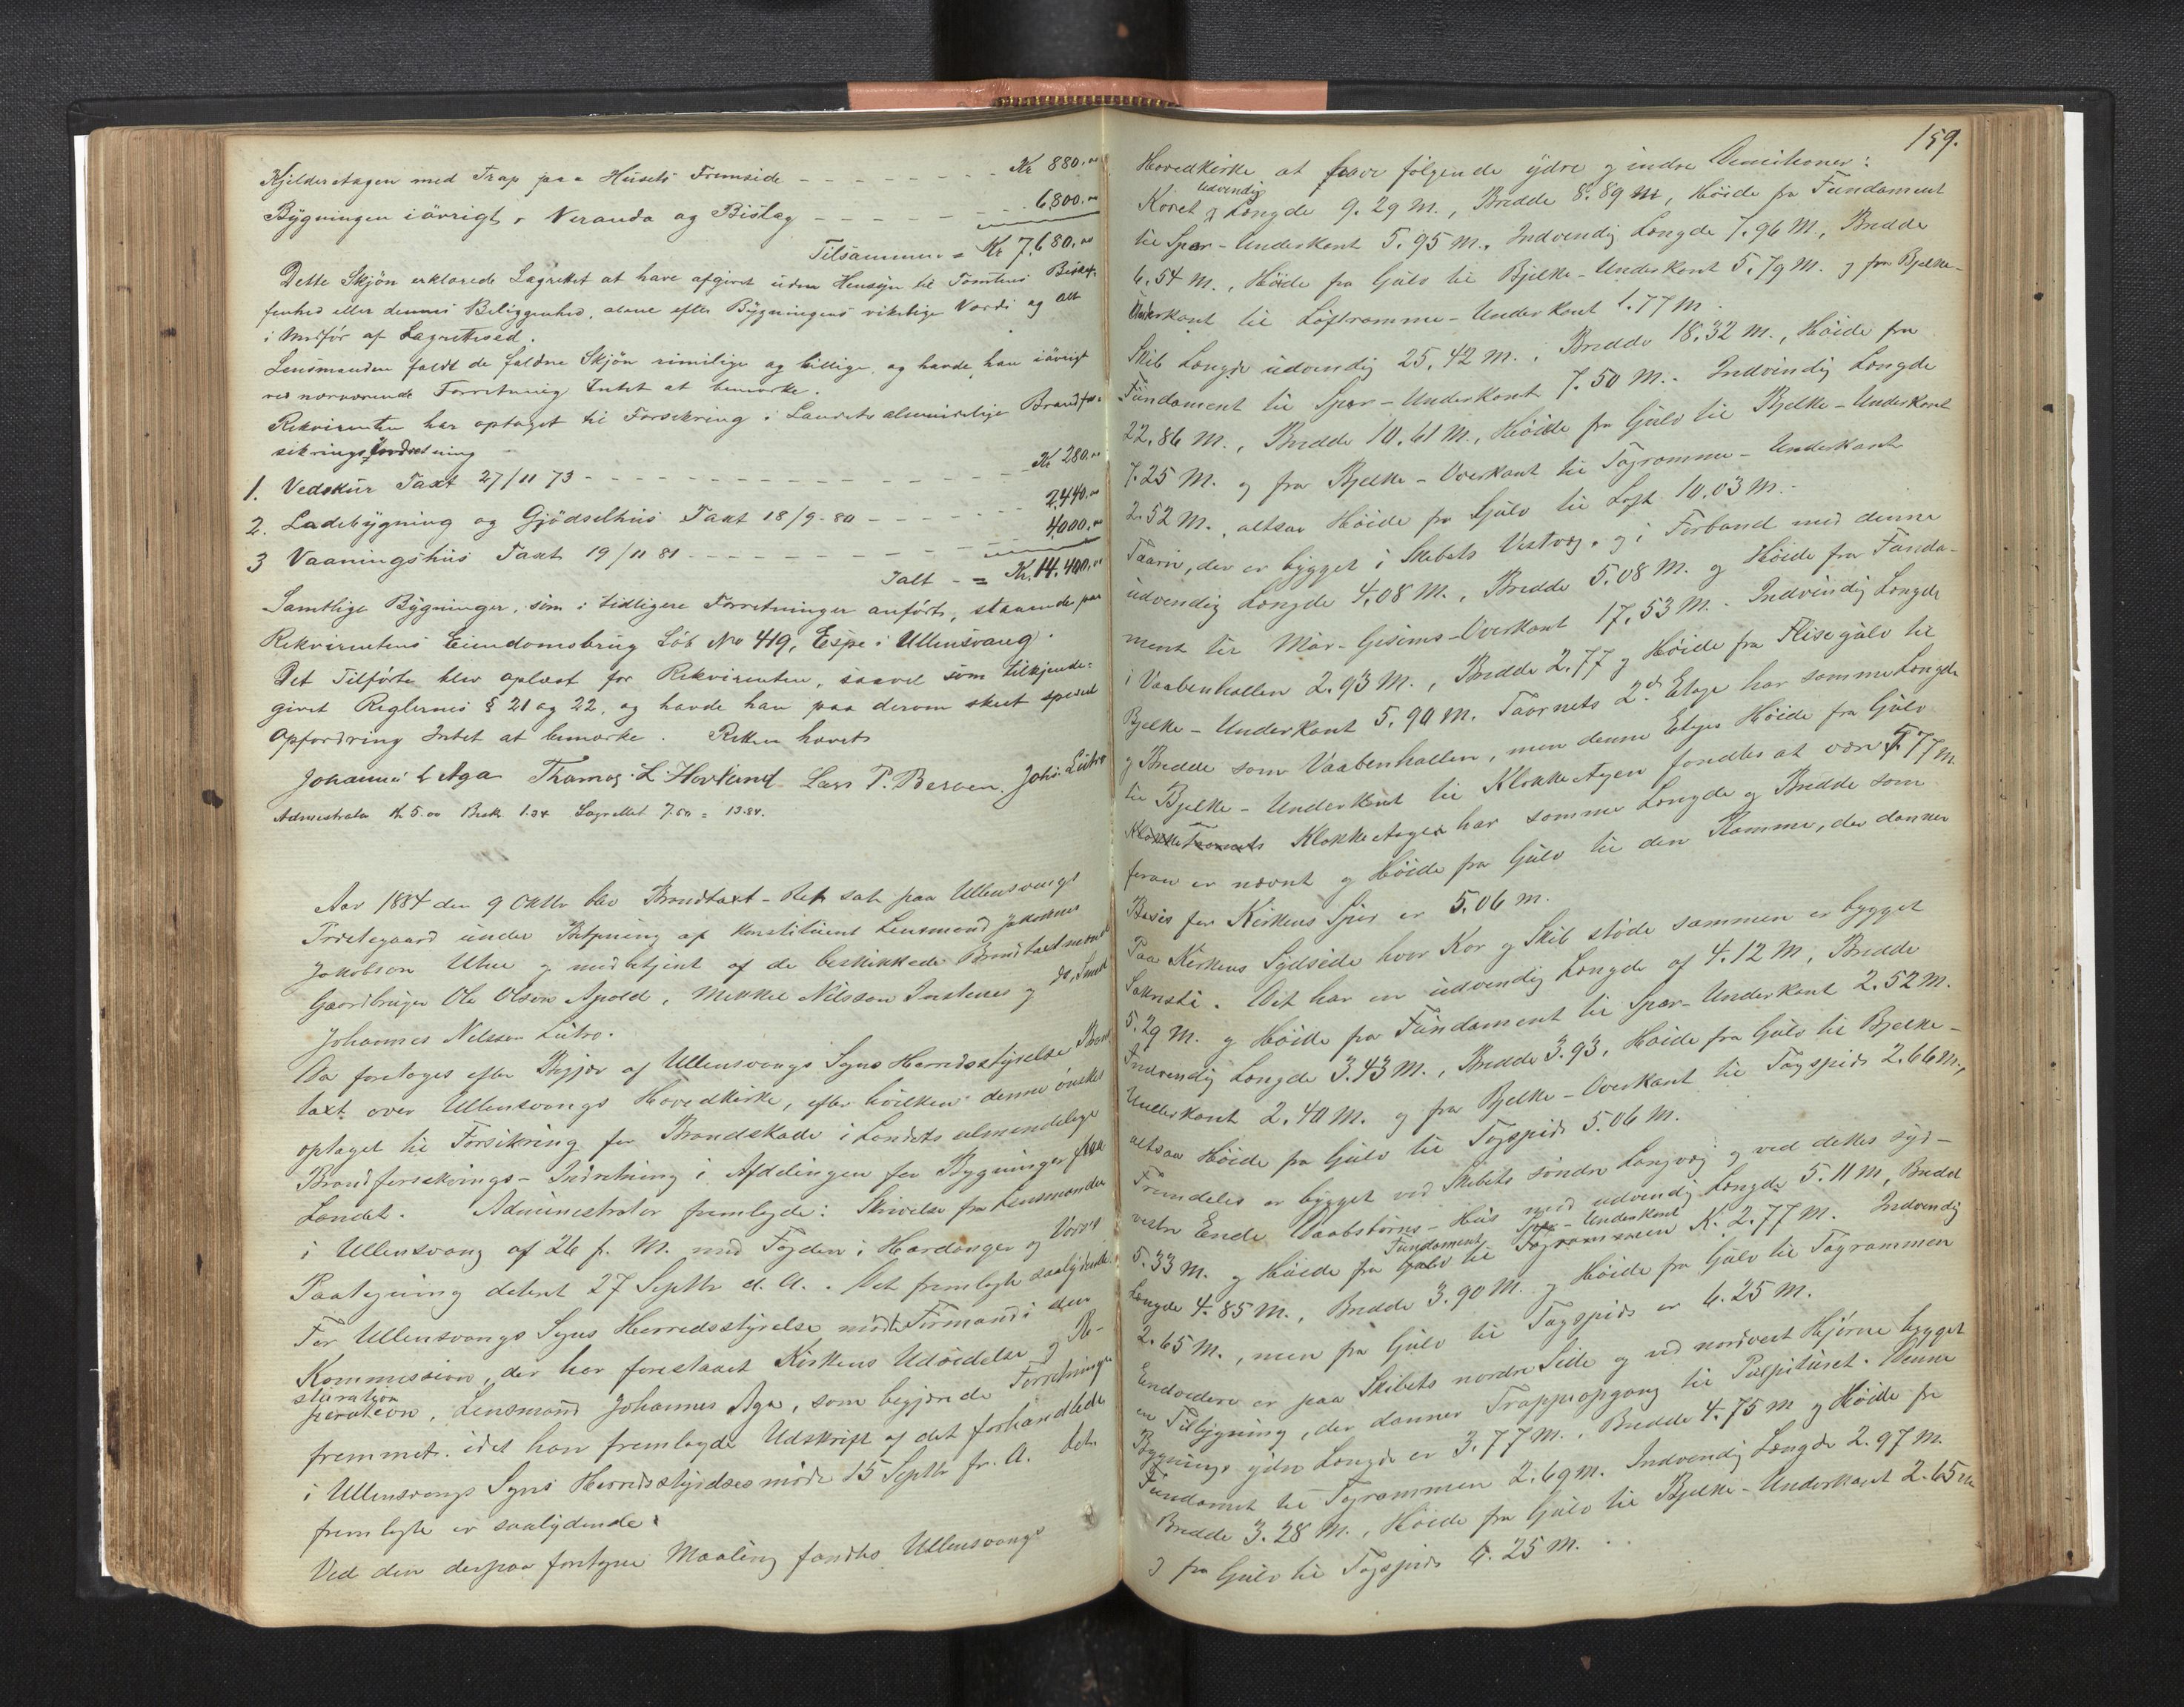 Kjelderetagen med Trap paa Husets Fremside - - - - - - - - Kr 880.00
Bygningen iøvrigt, Veranda og Bislag - - - - - - - 6.800.00
Tilsammen = Kr 7.680.00
Dette Skjøn erklærede Lagrettet at have afgivet uden Hensyn til Tomtens Beskaf-
fenhed eller dennes Beliggenhed, alene efter Bygningens virkelige Værdi og alt
i Medfør af Lagrettesed.
Lensmanden fandt de faldne Skjøn rimelige og billige, og havde han iøvrigt
ved nærværende Forretning Intet at bemærke.
Rekvirenten har optaget til Forsikring i Landets almindelige Brandfor-
sikringsindretning
1. Vedskur Taxt 27/11 73 - - - - - - - - - - - Kr 280.00
2. Ladebygning og Gjødselhus Taxt 18/9-80 - - - - - - 2,440.00
3 Vaaningshus Taxt 19/11 81 - - - - - - - - 4,000.00
Ialt - = Kr. 14.400.00
Samtlige Bygninger, som i tidligere Forretninger anført, staaende paa
Rekvirentens Eiendomsbrug Løb No 419, Espe i Ullensvang.
Det Tilførte blev oplæst for Rekvirenten, saavel som tilkjende-
givet Reglernes § 21 og 22, og havde han paa derom skeet speciel
Opfordring Intet at bemærke. Retten hævet
Johannes L Aga Thomas L. Hovland Lars P. Berven. Johs. Lutro
Administrator Kr 5.00 Besk. 1.34 Lagrettet 7.50 = 13.84.
Aar 1884 den 9 Oktbr blev Brandtaxt-Ret sat paa Ullensvangs
Præstegaard under Betjening af konstitueret Lensmand Jakobsens
Jakobson Utne og medbetjent af de beskikkede Brandtaxtmænd
Gaardbruger Ole Olsen Apold, Mikkel Nilsson Instenes og do, Smed
Johannes Nilsson Lutro.
Da foretoges efter Begjær af Ullensvangs Sogns Herredsstyrelse Brand-
taxt over Ullensvangs Hovedkirke, efter hvilken denne ønskes
optaget til Forsikring for Brandskade i Landets almindelige
Brandforsikrings-Indretning i Afdelingen for Bygninger paa
Landet. Administrator fremlagde: Skrivelse fra Lensmanden
i Ullensvang af 26 f. M. med Fogden i Hardanger og Voss's
Paategning dateret 27 Septbr d. A.. Det fremlagte saalydende.
For Ullensvangs Sogns Herredsstyrelse mødte Formand i den
Kommission, der har forestaaet Kirkens Udvidelse og Re-
sturation
peration, Lensmand Johannes Aga, som begjærede Forretningen
fremmet. idet han fremlagde Udskrift af det forhandlede
i Ullensvangs Sogns Herredsstyrelsesmøde 15 Septbr fr. A. Det
fremlagte er saalydende:
Ved den derpaa foretagne Maaling fandtes Ullensvangs
159.
Hovedkirke at have følgende ydre og indre Dimitioner:
udvendig
Koret Længde 9.29 M., Bredde 8.89 M, Høide fra Fundament
til Spær-Underkant 5.95 M., Indvendig Længde 7.96 M., Bredde
6.54 M., Høide fra Gulv til Bjelke-Underkant 5.79 M. og fra Bjelke-
Underkant til Loftramme-Underkant 1.77 M.
Skib Længde udvendig 25.42 M., Bredde 18.32 M., Høide fra
Fundament til Spær-Underkant 7.50 M.. Indvendig Længde
22.86 M., Bredde 10.61 M., Høide fra Gulv til Bjelke-Underkant
7.25 M. og fra Bjelke-Overkant til Tagramme-Underkant
2.52 M. altsaa Høide fra Gulv til Loft 10.03 M.
Taarn, der er bygget i Skibets Vestvæg, og i Forband med denne
udvendig Længde 4.08 M., Bredde 5.08 M. og Høide fra Funda-
ment til Mur-Gesims-Overkant 17.53 M. Indvendig Længde
i Vaabenhallen 2.93 M., Bredde 2.77 og Høide fra Flisegulv til
Bjelke-Underkant 5.90 M. Taarnets 2d Etage har samme Længde
og Bredde som Vaabenhallen, men denne Etages Høide fra Gulv
til Bjelke-Underkant til Klokke Etagen fandtes at være 5.77 M.
Klokke Taarnets Klokke Etage har samme Længde og Bredde som
foran er nævnt og Høide fra Gulv til den Ramme, der danner
Basis for Kirkens Spir er 5.06 M.
Paa Kirkens Sydside hvor Kor og Skib støde sammen er bygget
Sakristi. Det har en udvendig Længde af 4.12 M, Bredde
5.29 M. og Høide fra Fundament til Spær-Underkant 2.52 M.
Indvendig Længde 3.43 M., Bredde 3.93, Høide fra Gulv til Bjelke-
Underkant 2.40 M. og fra Bjelke-Overkant til Tagspids 2.66 M.,
altsaa Høide fra Gulv til Tagspids 5.06 M.
Fremdeles er bygget ved Skibets søndre Langvæg og ved dettes syd-
vestre Ende Daabsbørns-Hus med udvendig Længde 5.11 M, Bredde
Fundament Spær-Underkant
5.33 M. og Høide fra Gulv til Tagrammen K. 2.77 M. Indvendig
Længde 4.85 M., Bredde 3.90 M. og Høide fra Gulv til Tagrammen
2.65 M., men fra Gulv til Tagspids er 4.25 M.
Endvidere er paa Skibets nordre Side og ved nordvest Hjørne bygget
en Tilbygning, der danner Trappeopgang til Pulpituret. Denne
Bygnings ydre Længde er 3.77 M., Bredde 4.75 M og Høide fra
Fundamet til Tagrammen 2.69 M. Indvendig Længde 2.97 M.
Bredde 3.28 M., Høide fra Gulv til Bjelke-Underkant 2.65 M
og fra Gulv til Tagspids 4.25 M.